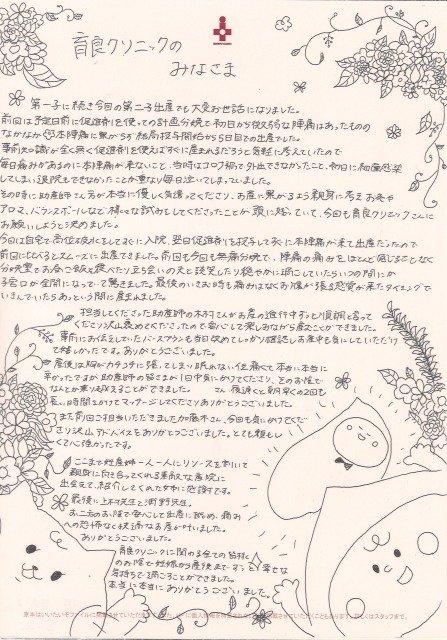 育良クリニックの
みなさま
第一子に続き今回の第二子出産でも大変お世話になりました。
前回は予定日前に促進剤を使っての計画分娩で初日から微弱な陣痛はあったものの
なかなか本陣痛に繋がらず結局投与開始から5日目での出産でした。
事前知識が全く無く促進剤を使えばすぐに産まれるだろうと気軽に考えていたので
毎日痛みがあるのに本陣痛が来ないこと、当時はコロナ禍で外出できなかったこと、初日に細菌感染
してしまい退院もできなかったことが重なり毎日泣いてしまっていました。
その時に助産師さん方が本当に優しく気遣ってくださり、お産に繋がるよう親身に考えお灸や
アロマ、バランスボールなど様々な試みをしてくださったことが頭に残っていて、今回も育良クリニックさんに
お願いしようと決めました。
今回は自宅で高位破水をしてすぐに入院、翌日促進剤を投与して来に本陣痛が来て出産だったので
前回に比べるとスムーズに出産できました。前回も今回も無痛分娩で、陣痛の痛みをほとんど感じることなく
分娩室でお昼ご飯を食べたり立ち会いの夫と談笑したり穏やかに過ごしていたらいつの間にか
子宮口が全開になっていて驚きました。最後のいきむ時も痛みはなくお腹が張る感覚が来たタイミングで
いきんでいたらあっという間に産まれました。
担当してくださった助産師の木村さんがお産の進行中ずっと順調と言って
くださり沢山褒めてくださったので安心して楽しみながら産むことができました。
事前にお伝えしていたバースプランも当日改めてしっかり確認しお産中も気にしていただけ
て嬉しかったです。ありがとうございました。
産後は胸がカチコチに張ってしまい眠れない位痛くて本当に本当に
辛かったですが助産師の皆さまが1日中気にかけてくださり、そのお陰で
なんとか乗り越えることができました。　さん夜遅くと朝早くの2回も
長い時間をかけてマッサージしてくださりありがとうございました。
また前回ご担当いただきました加藤さん、今回も気にかけてくだ
さり沢山アドバイスをありがとうございました。とても頼もし
くて心強かったです。
ここまで妊産婦一人一人にリソースを割いて
親身に向き合ってくれる素敵な病院に
出会えて、紹介してくれた姉に感謝です。
最後に上井先生と浦野先生。
お二方のお陰で安心して出産に臨め、痛み
への恐怖なく快適なお産が叶いました。
ありがとうございました。
育良クリニックに関わる全ての皆様
のお陰で妊娠から産後まで、ずっと幸せな
気持ちで過ごすことができました。
本当に本当にありがとうございました。